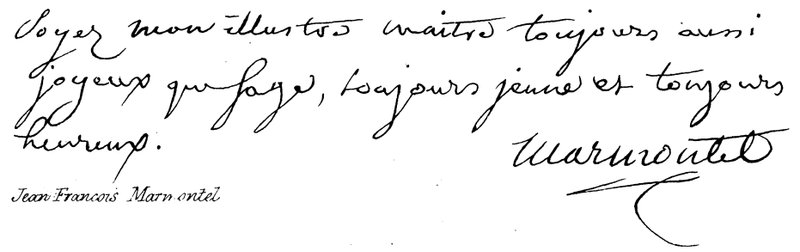 Soyez mon illustre maitre toujours aussi
joyeux que sage, toujours jeune et toujours
heureux.
Marmontel
Jean Francois Marmontel